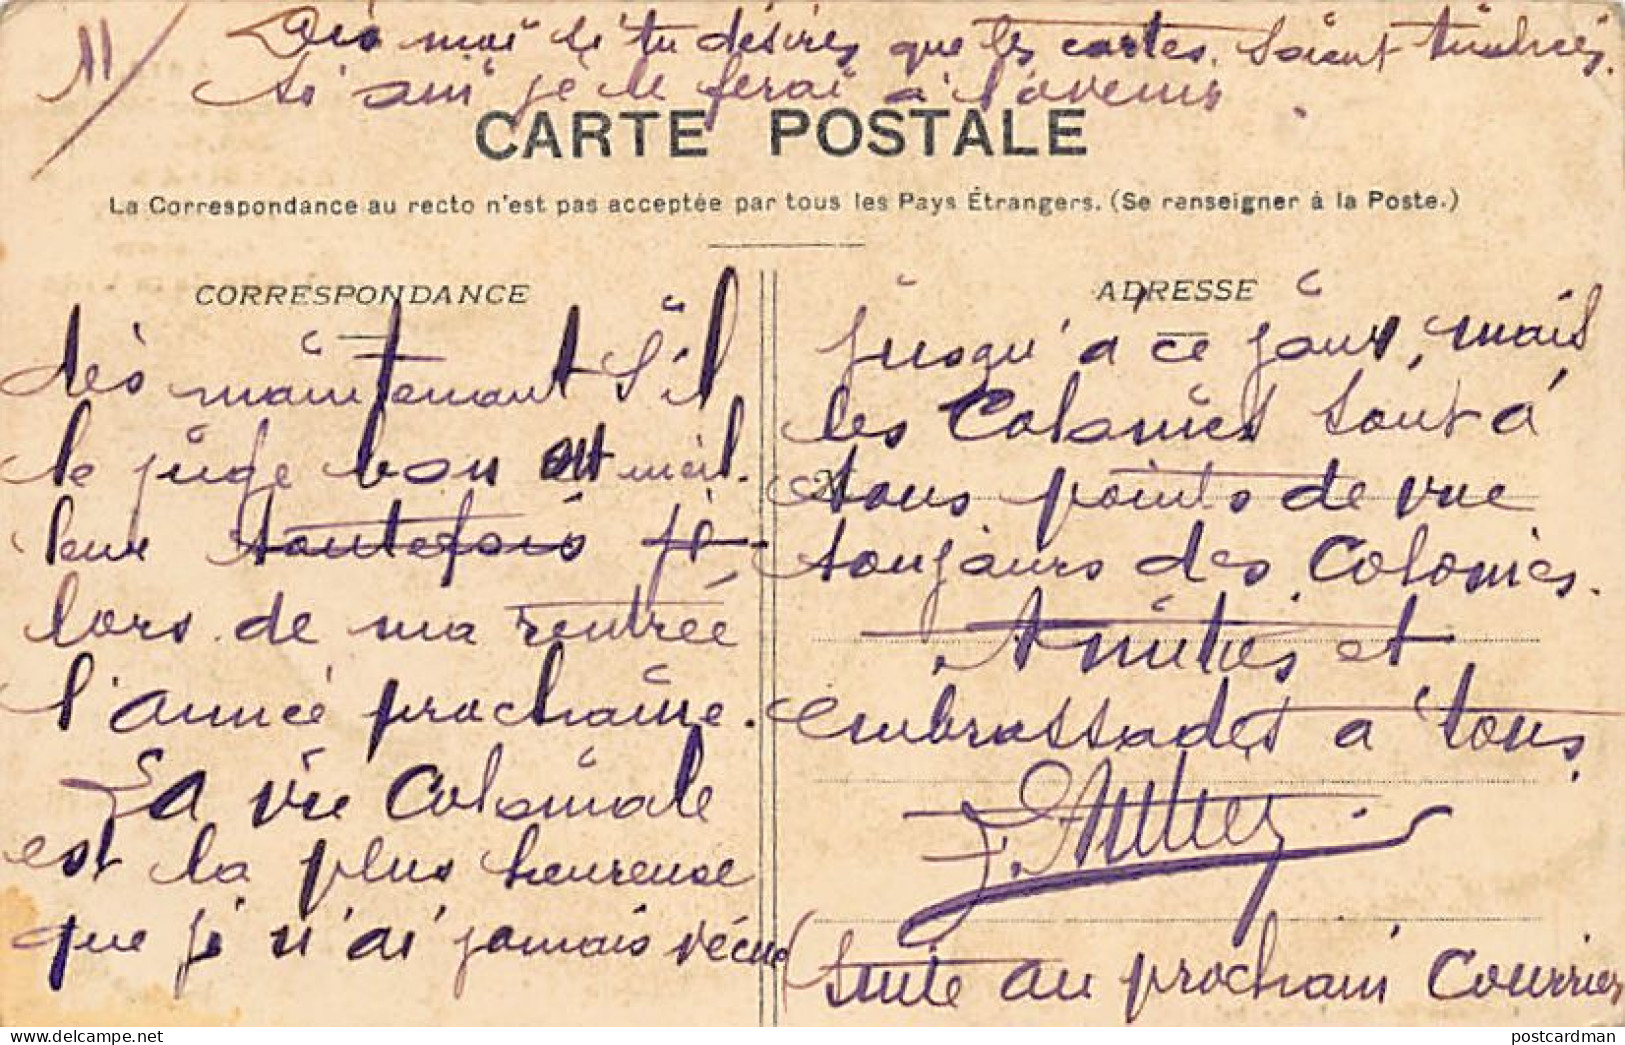 11/ Dis moi si tu désires que les cartes soient timbrées.
si oui je le ferai à l'avenir.
CARTE POSTALE
La Correspondance au recto n'est pas acceptée par tous les Pays Étrangers. (Se renseigner à la Poste.)
CORRESPONDANCE
dès maintenant s'il
le juge bon et meil-
leur toutefois je
lors de ma rentrée
l'année prochaine.
La vie Coloniale
est la plus heureuse
que je n'ai jamais vécue
ADRESSE
jusqu'à ce jour, mais
les Colonies sont à
tous points de vue
toujours des Colonies.
Amitiés et
embrassades à tous
(Suite au prochain Courrier
postcardman